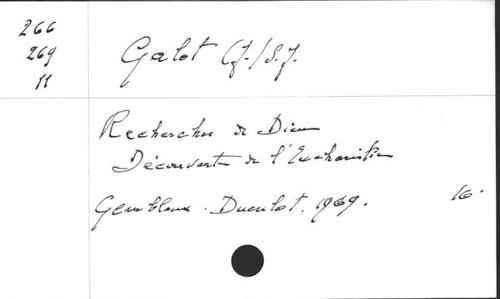 266
269
11
Galot (J.) S.J.
Recherches de Dieu
Découverte de l'Eucharistie
Gembloux. Duculot. 1969. 16.